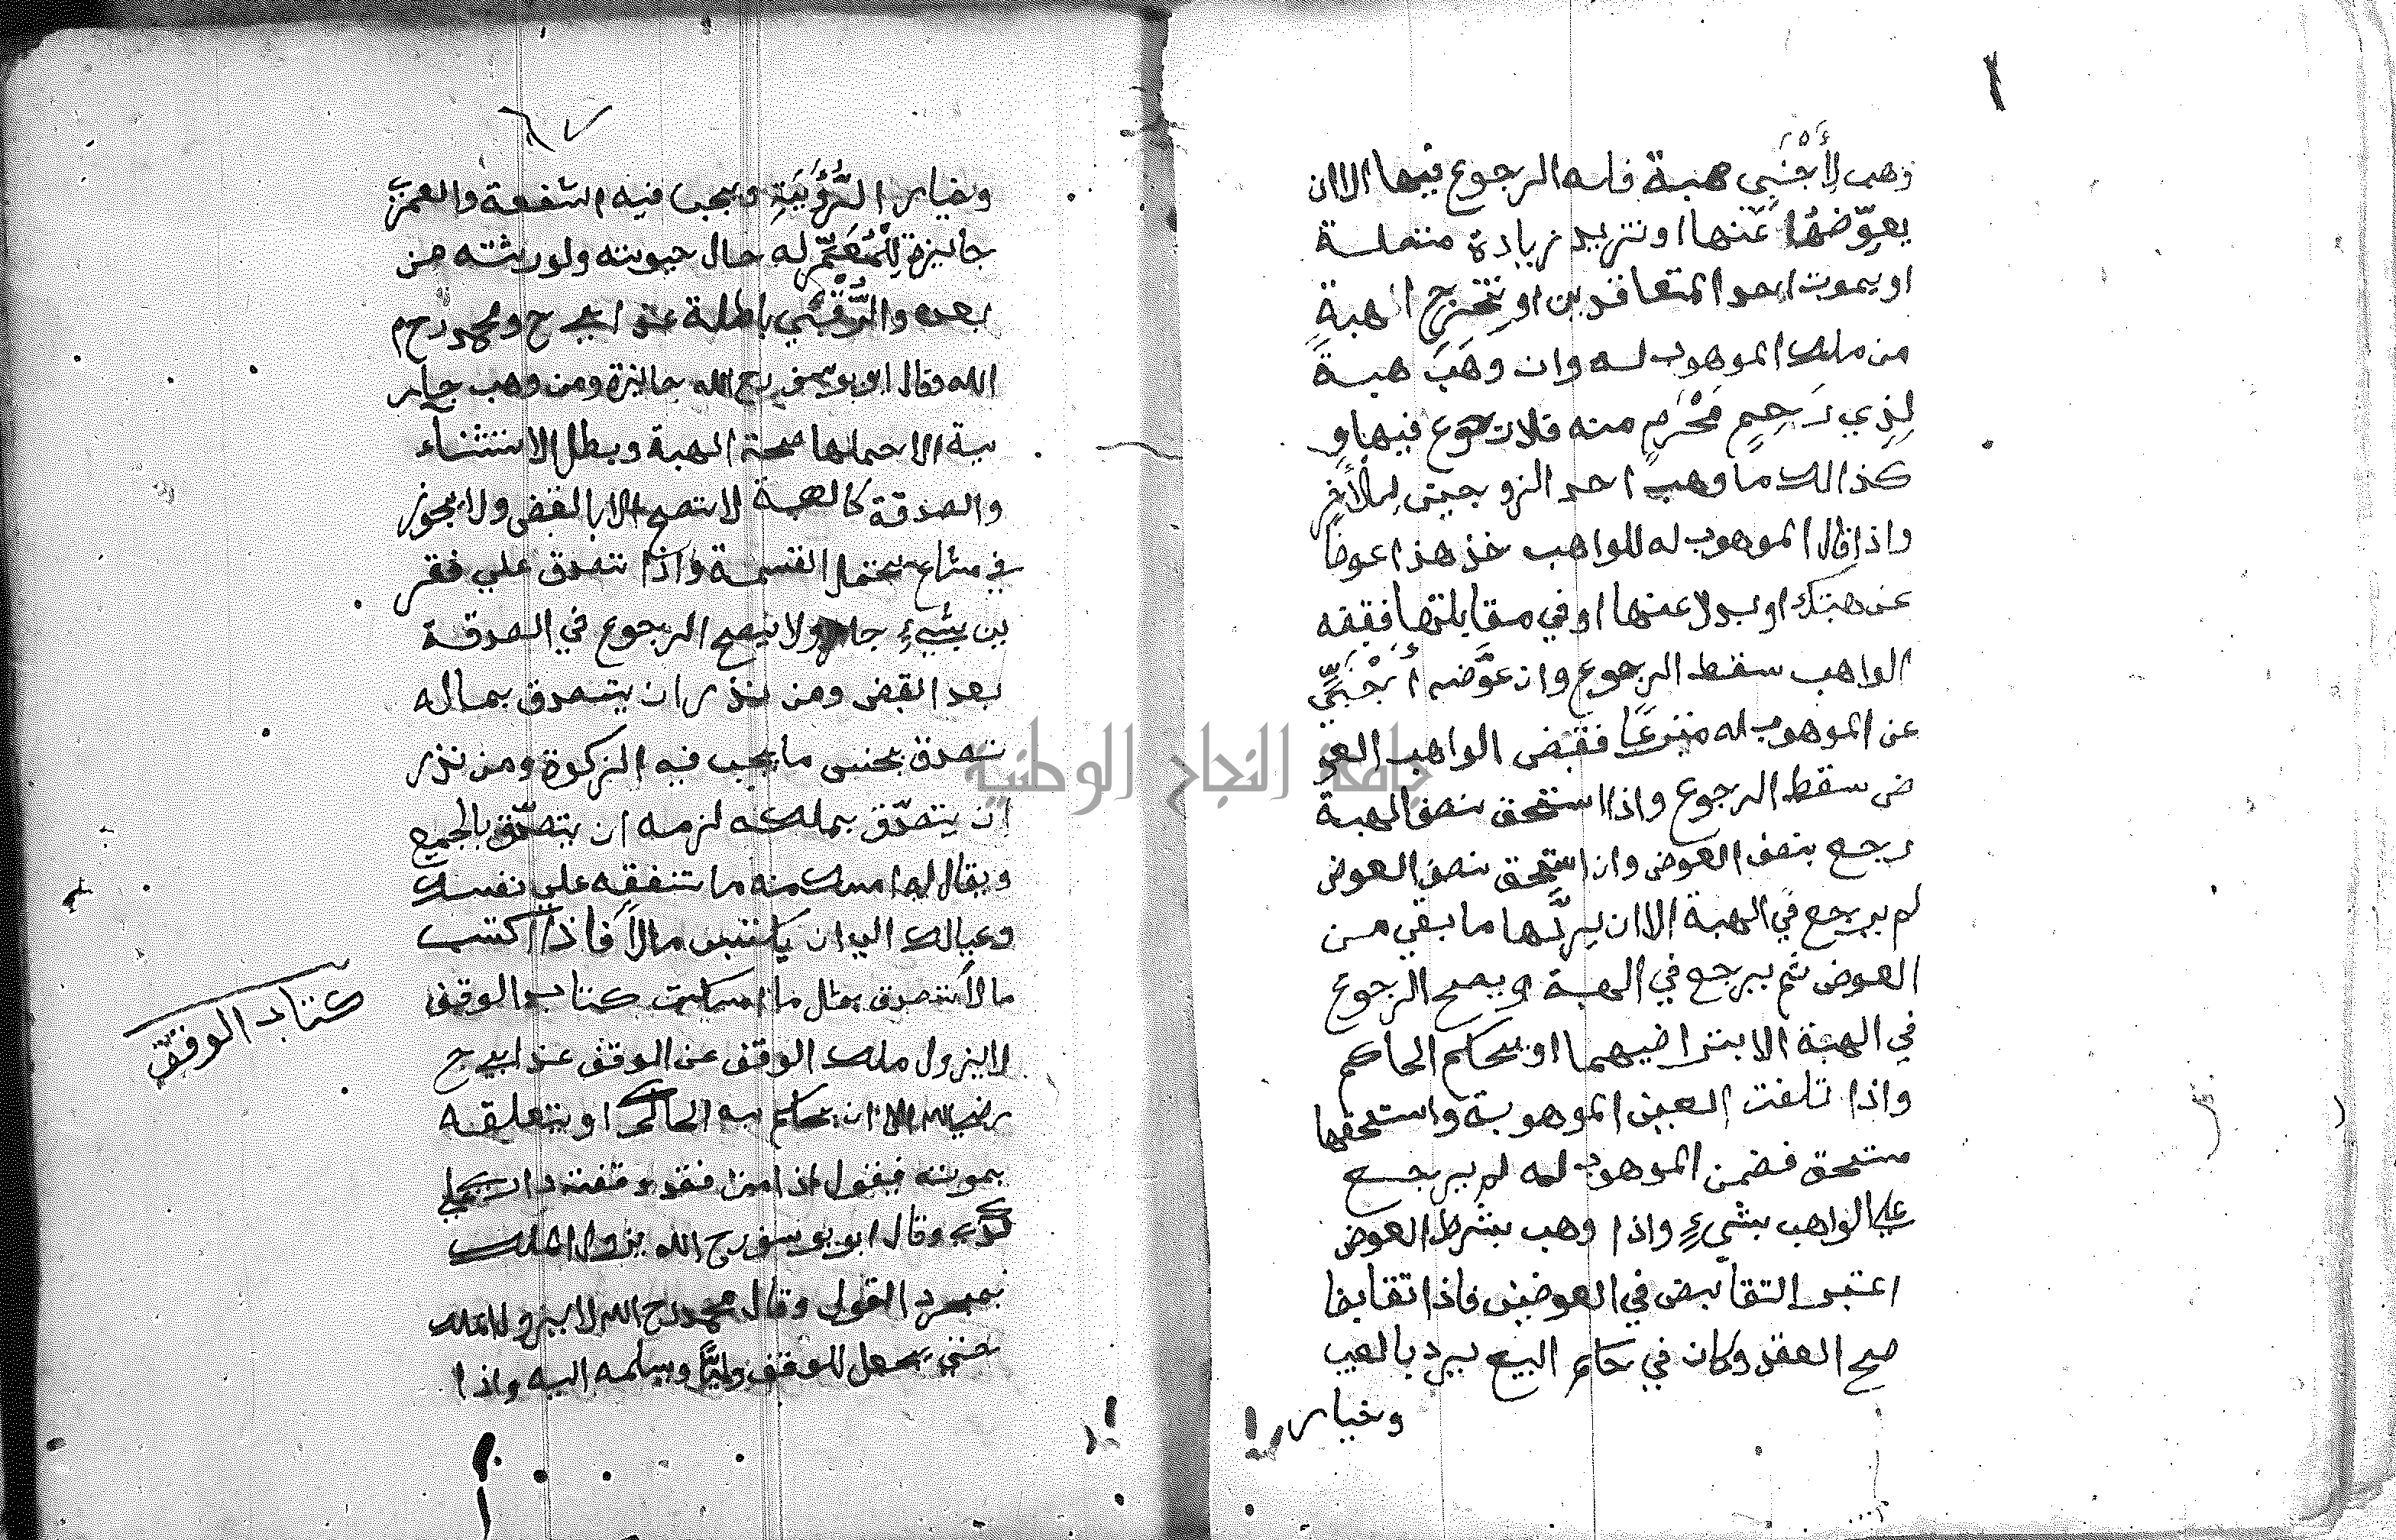 وهب لأجنبي هبة فله الرجوع فيها الا ان
يعوّضهُا عَنها او تزيد زيادة متصلة
او يموت احد المتعاقدين او تخرج الهبةِ
من ملك الموهوب له وان وَهَبَ هبة
لِذِي رَحِمٍ مَحْرَمٍ منه فلا رجوع فيها و
كذالك ما وهب احد الزوجين للأخرِ
واذا قال الموهوب له للواهب خذ هذا عوضا
عن هبتك او بدلا عنها او في مقابلتها فقبضه
الواهب سقط الرجوع وان عوَّضه أَجْنَبِيٌّ
عن الموهوب له متبرعًا فقبض الواهب العو
ض سقط الرجوع واذا استحق نصف الهبة
رجع بنصف العوض وان استحق نصف العوض
لم يرجع في الهبة الا ان يردَّها ما بقي من
العوض ثم يرجع في الهبة ويصح الرجوع
في الهبة الا بتراضيهما او بحكم الحاكم
واذا تلفت العين الموهوبة واستحقها
مستحق فضمن الموهوب له لم يرجع
على الواهب بشيءٍ واذا وهب بشرط العوض
اعتبر التقابض في العوضين فاذا تقابضا
صح العقد وكان في حكم البيع يرد بالعيب
وخيار
٦٧
وخيار الرُّؤْيَةِ ويجب فيه الشفعة والعمرَي
جايزة لِلْمُعَمَّرِ له حال حيوته ولورثته من
بعده والرُّقْبَي باطلة عند ابي ح ومحمد رحم
الله وقال ابو يوسف رح الله جايزة ومن وهب جار
ية الا حملها صحة الهبة وبطل الاستثناء
والصدقة كالهبة لا تصح الا بالقبض ولا يجوز
في مشاع يحتمل القسمة واذا تصدق علي فقر
ين بشيءٍ جاز ولا يصح الرجوع في الصدقة
بعد القبض ومن نذر ان يتصدق بماله
تصدق بجنس ما يجب فيه الزكوة ومن نذر
ان يتصدّق بملكه لزمه ان يتصدّق بالجميع
ويقال له امسك منه ما تنفقه علي نفسك
وعيالك الي ان يكتسب مالاً فاذا اكتسب
مالاً تصدق بمثل ما امسكت كتاب الوقف
كتاب الوقف
لا يزول ملك الوقف عن الوقف عند ابي ح
رضي الله الا ان يحكم به الحاكم او يتعلقه
بموته فيقول اذا مت فقد وقفت داري علي
كذي وقال ابو يوسف رح الله يزول الملك
بمجرد القول وقال محمد رح الله لا يزول الملك
حتي يجعل للوقف وليًّا ويسلمه اليه واذا
جامعة النجاح الوطنية